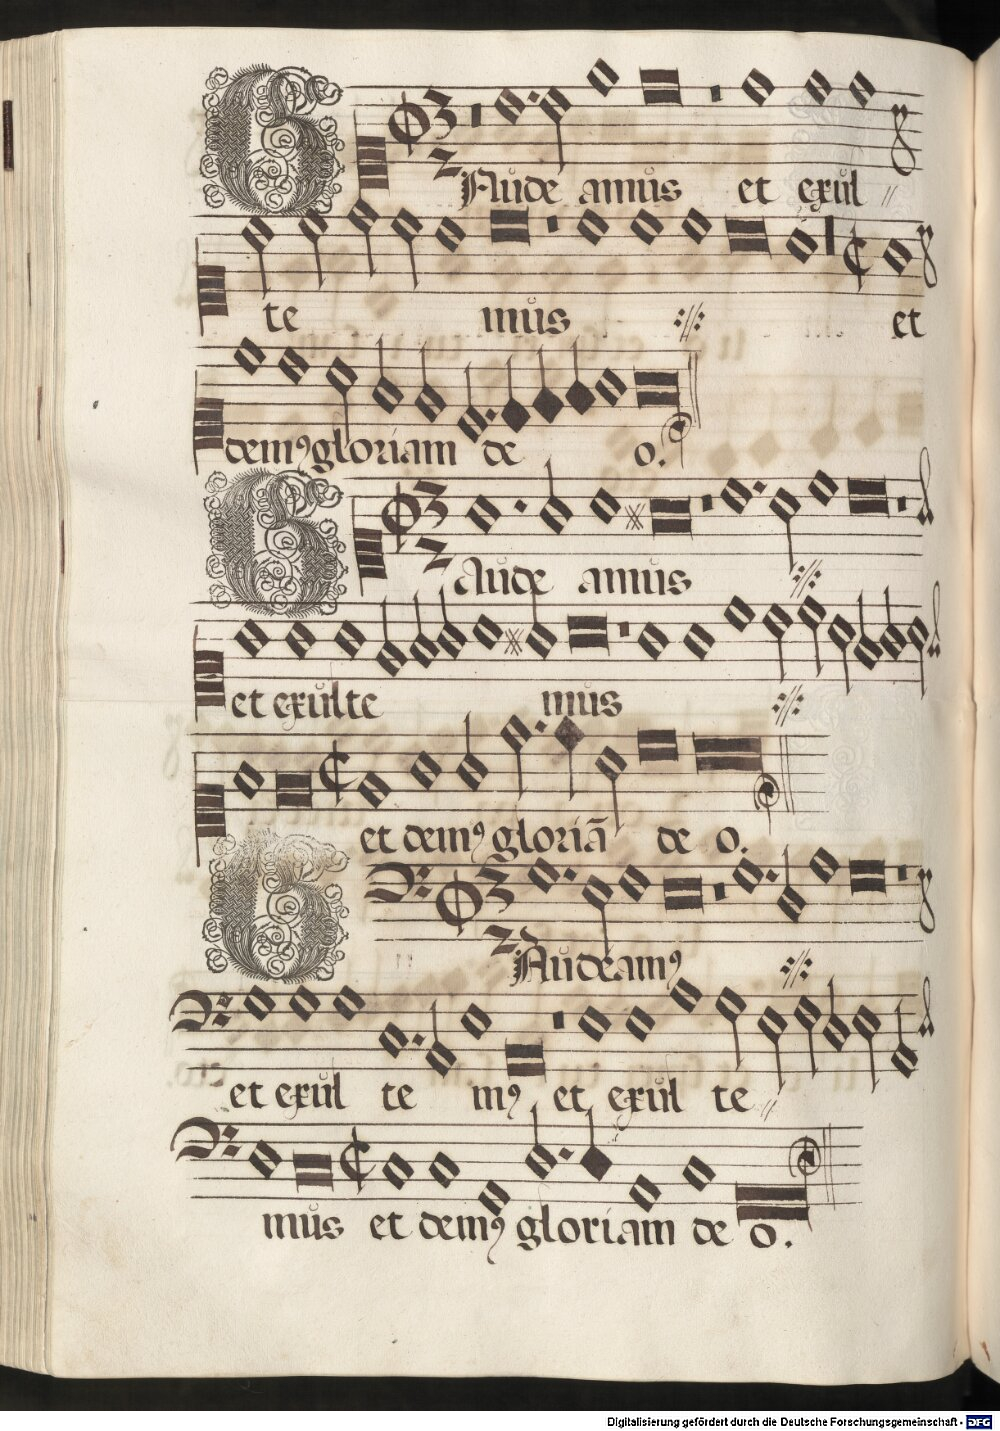 GAude amus et exul
te mus et
demꝰ gloriam de o.
GAude amus
et exulte mus
et demꝰ gloriā de o.
GAudeamꝰ
et exul te mꝰ et exul te
mus et demꝰ gloriam de o.
Digitalisierung gefördert durch die Deutsche Forschungsgemeinschaft - DFG